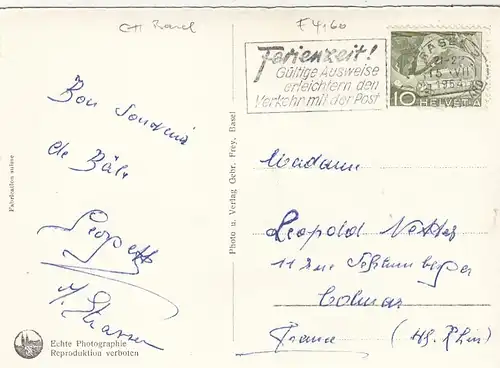 CH Basel
F 4,60
Ferienzeit!
Gültige Ausweise
erleichtern den
Verkehr mit der Post
BASEL
21-22
15. VII
1954
10 HELVETIA
Bon Souvenir
de Bâle
Léopold
Y. Strasser
Fabrication suisse
Photo u. Verlag Gebr. Frey, Basel
Madame
Leopold
11 rue
Colmar
France (Ht. Rhin)
Echte Photographie
Reproduktion verboten